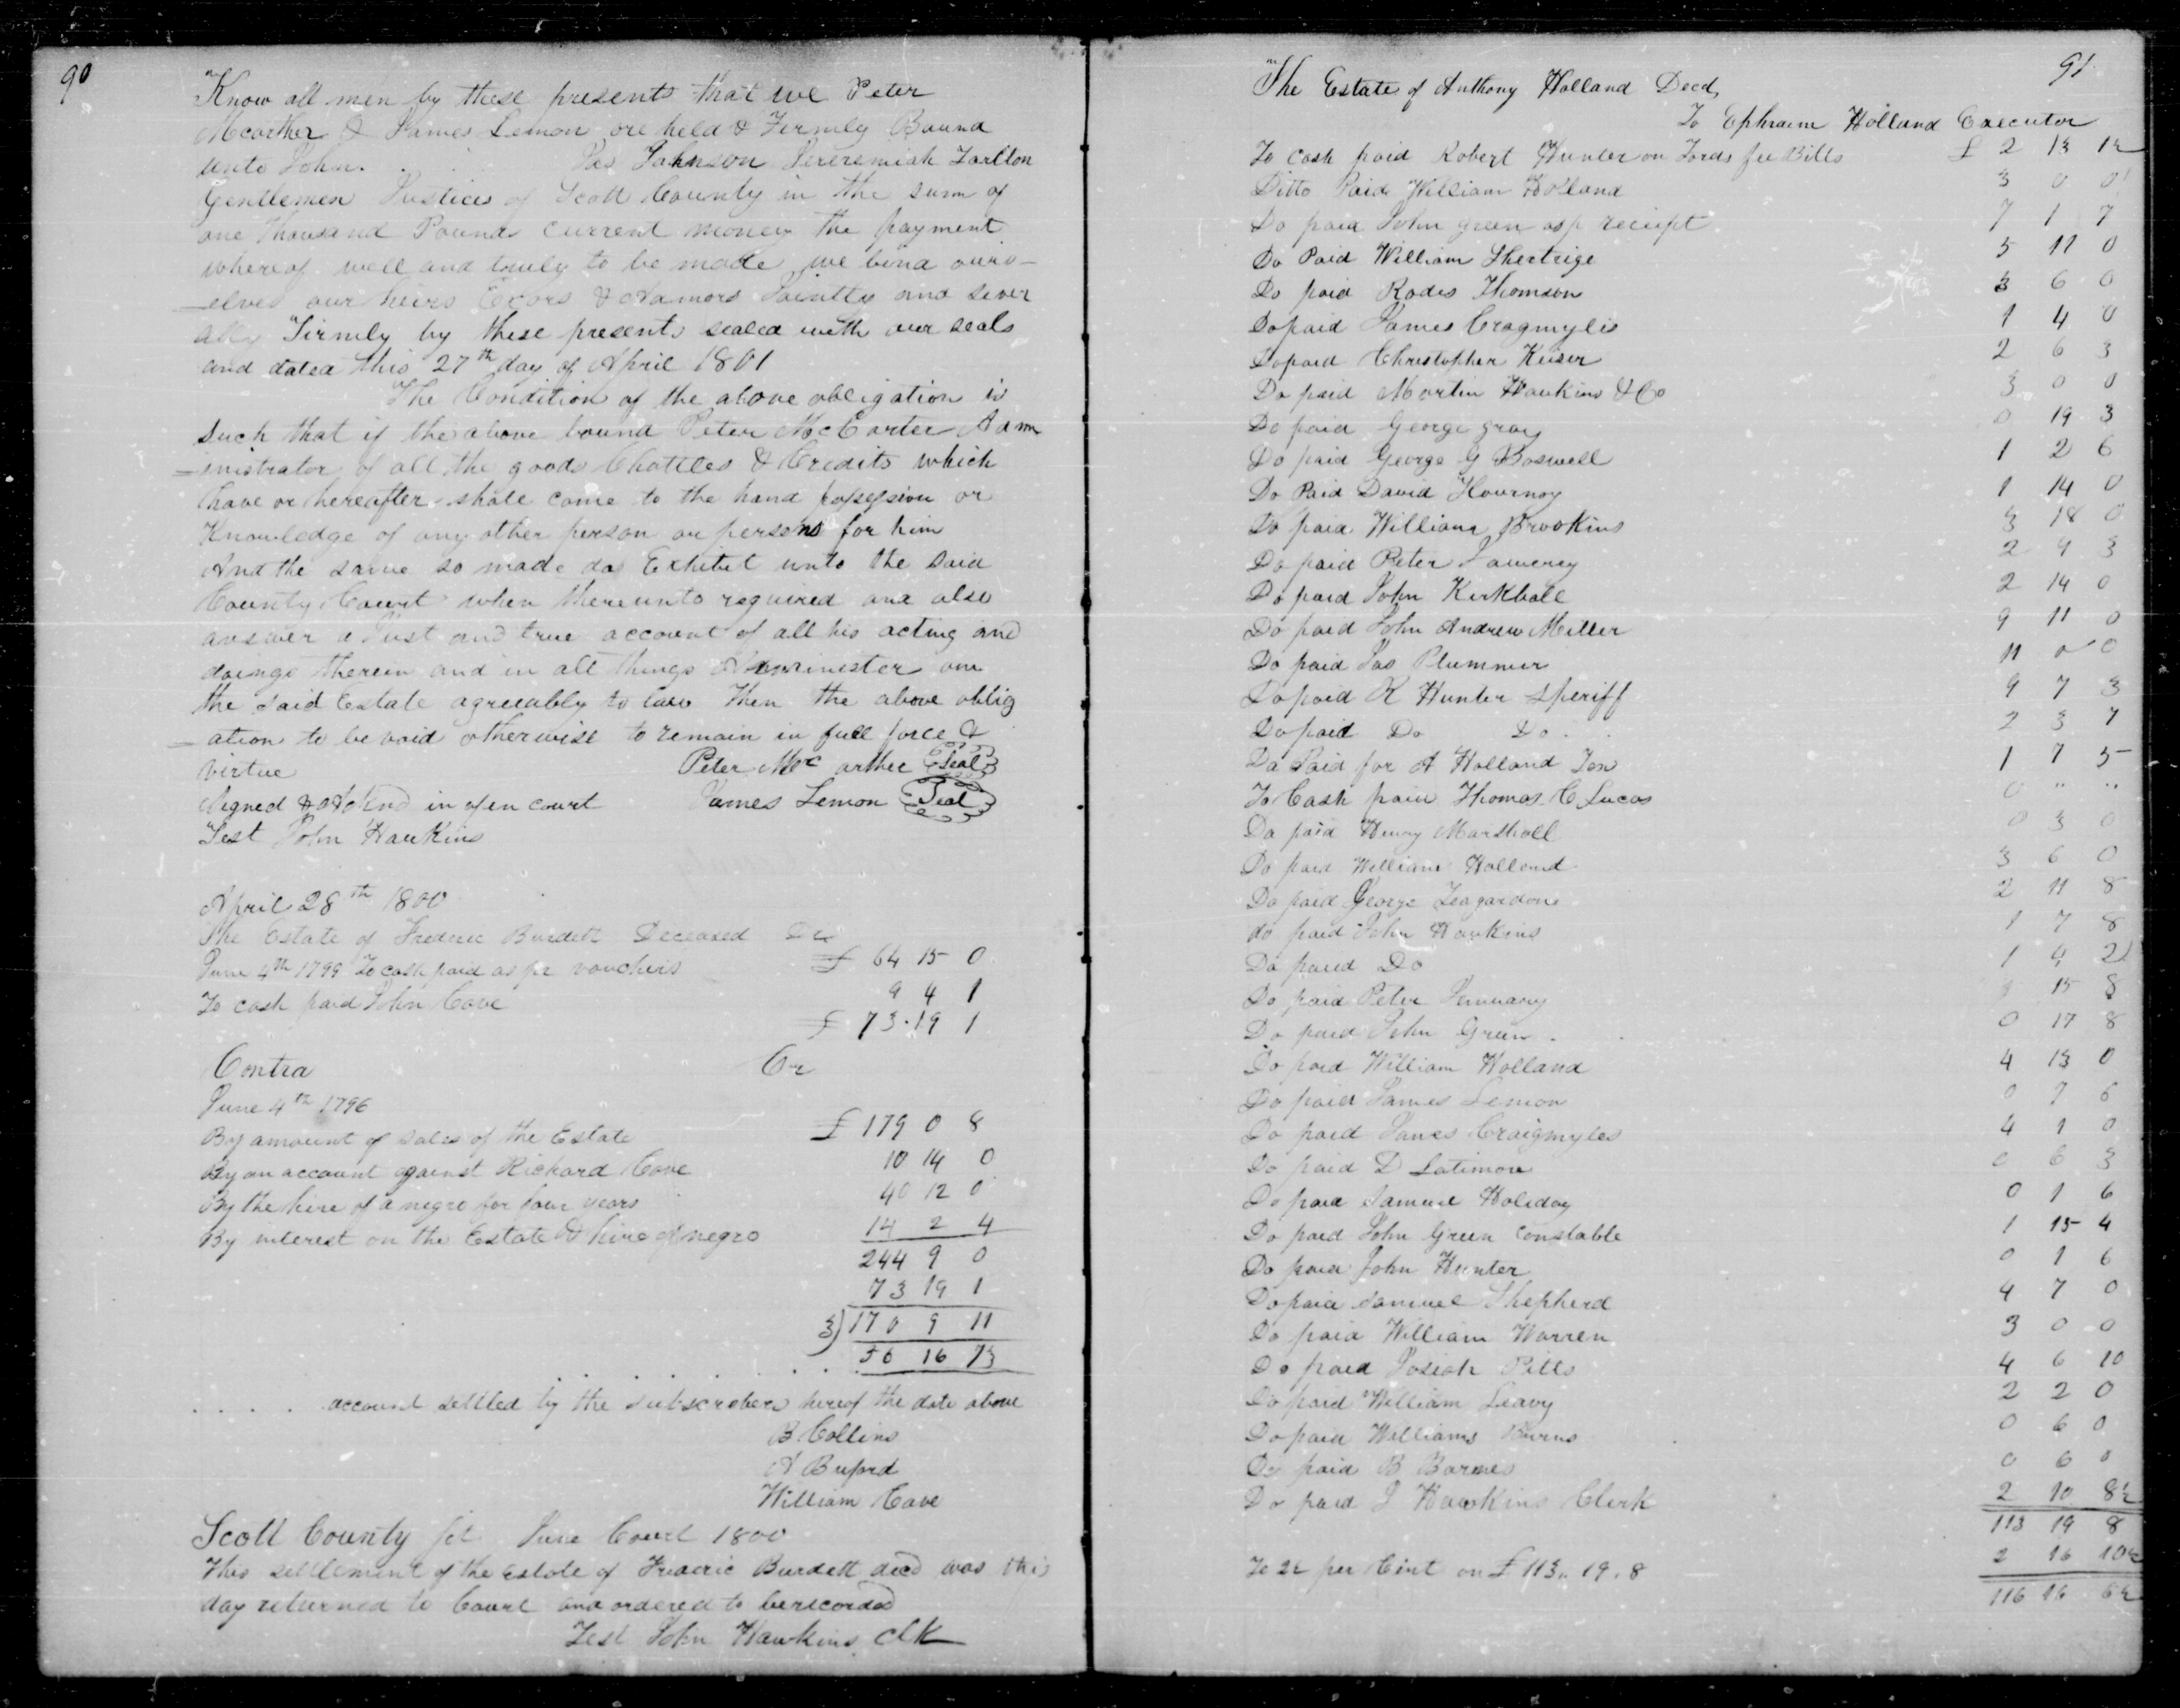 90
Know all men by these presents that we Peter
Mcarther & James Lemon are held & Firmly Bound
unto John . . . Jas Johnson Jereremiah Tarlton
Gentlemen Justices of Scott County in the sum of
one thousand Pounds current money the payment
whereof well and truly to be made we bind ours-
-elves our heirs Exors & Admors Jointly and sever
ally Firmly by these presents sealed with our seals
and dated this 27th day of April 1801
The Condition of the above obligation is
such that if the above bound Peter McCarter Adm
-inistrator of all the goods Chattles & Credits which
have or hereafter shall come to the hand possession or
Knowledge of any other person or persons for him
And the same so made do Exhibit unto the said
County Court when thereunto required and also
answer a Just and true account of all his acting and
doings therein and in all things Administer on
the said Estate agreeably to law then the above oblig
-ation to be void otherwise to remain in full force &
virtue Peter Mc arther Seal
Signed & in open court James Lemon Seal
Test John Hawkins
April 28th 1800
The Estate of Frederic Burdett Deceased Dr
June 4th 1799 To cash paid as pr vouchers £ 64 15 0
To cash paid John Cave 9 4 1
£ 73.19 1
Contra Cr
June 4th 1796
By amount of sales of the Estate £ 179 0 8
By an account against Richard Cave 10 14 0
By the hire of a negro for four years 40 12 0
By interest on the Estate & hire of negro 14 2 4
244 9 0
73 19 1
3) 170 9 11
56 16 7 1/3
. . . . account settled by the subscribers hereof the date above
B Collins
A Buford
William Cave
Scott County sct June Court 1800
This settlement of the Estate of Frederic Burdett decd was this
day returned to Court and ordered to berecorded
Test John Hawkins Clk
91
The Estate of Anthony Holland Decd
To Ephraim Holland Executor
To cash paid Robert Hunter on Fords fee Bills £ 2 13 1½
Ditto Paid William Holland 3 0 0
Do paid John green as p receipt 7 1 7
Do Paid William Shertrige 5 11 0
Do paid Rodes Thomson 3 6 0
Do paid James Cragmyles 1 4 0
Do paid Christopher Keiser 2 6 3
Do paid Martin Hawkins & Co 3 0 0
Do paid George gray 0 19 3
Do paid George G Boswell 1 2 6
Do Paid David Flournoy 1 14 0
Do paid William Brookins 3 18 0
Do paid Peter 2 4 3
Do paid John Kirkhall 2 14 0
Do paid John Andrew Miller 9 11 0
Do paid Jas Plummer 11 0 0
Do paid R Hunter Sheriff 9 7 3
Do paid Do Do 2 3 7
Do Paid for A Holland Jon 1 7 5
To Cash paid Thomas C Lucas 0 " "
Do paid Henry Marshall 0 3 0
Do paid William Holland 3 6 0
Do paid George Teagardon 2 11 8
do paid John Hawkins 1 7 8
Do paid Do 1 4 2
Do paid Peter 15 8
Do paid John Green 0 17 8
Do paid William Holland 4 13 0
Do paid James Lemon 0 7 6
Do paid James Craigmyles 4 1 0
Do paid D Latimore 0 6 3
Do paid Samuel Holiday 0 1 6
Do paid John Green constable 1 15 4
Do paid John Hunter 0 1 6
Do paid Samuel Shepherd 4 7 0
Do paid William Warren 3 0 0
Do paid Josiah Pitts 4 6 10
Do paid William Leavy 2 2 0
Do paid Williams Burns 0 6 0
Do paid B Barnes 0 6 0
Do paid J Hawkins Clerk 2 10 8½
113 19 8
To 2½ per Cent on £ 113.. 19. 8 2 16 10½
116 16 6½